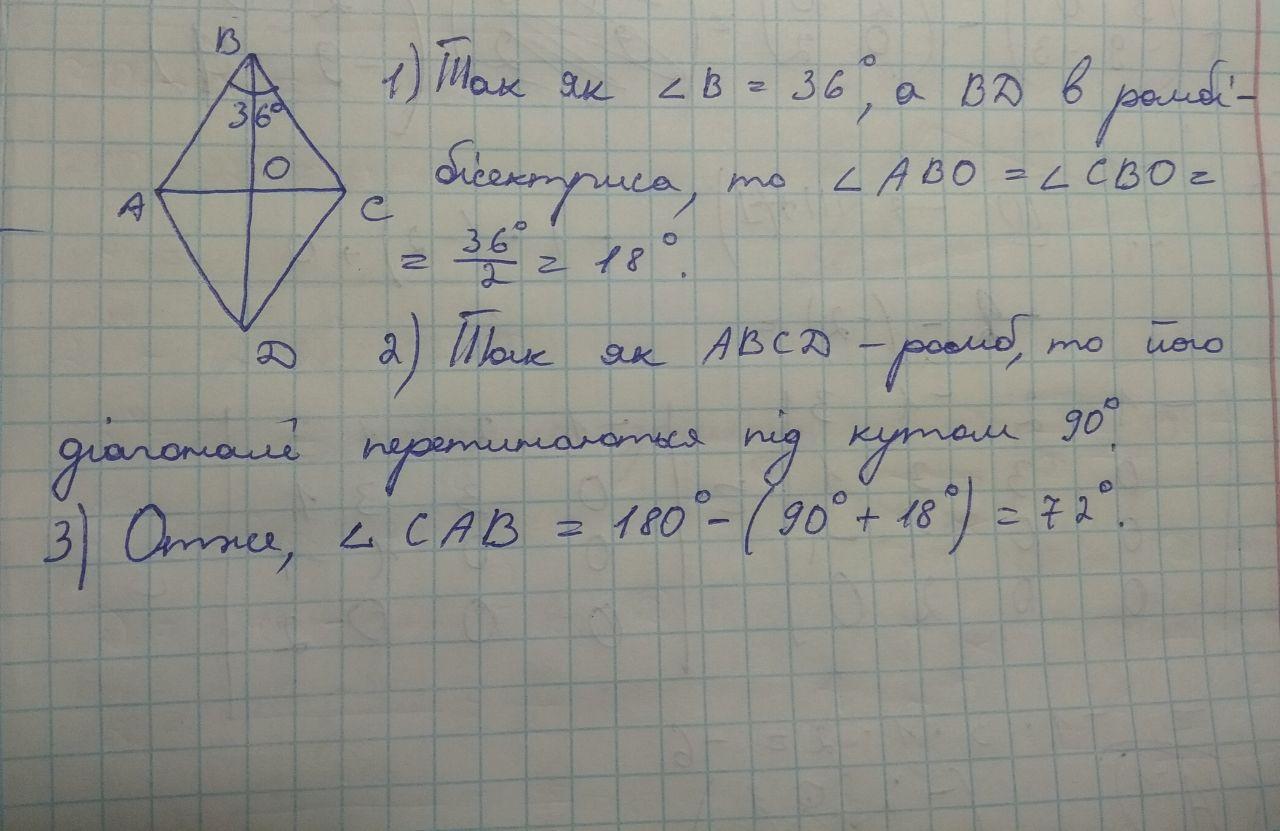 B
36°
O
A
C
D
1) Так як ∠B = 36°, а BD в ромбі -
бісектриса, то ∠ABO = ∠CBO =
= 36°/2 = 18°.
2) Так як ABCD - ромб, то його
діагоналі перетинаються під кутом 90°.
3) Отже, ∠CAB = 180° - (90° + 18°) = 72°.